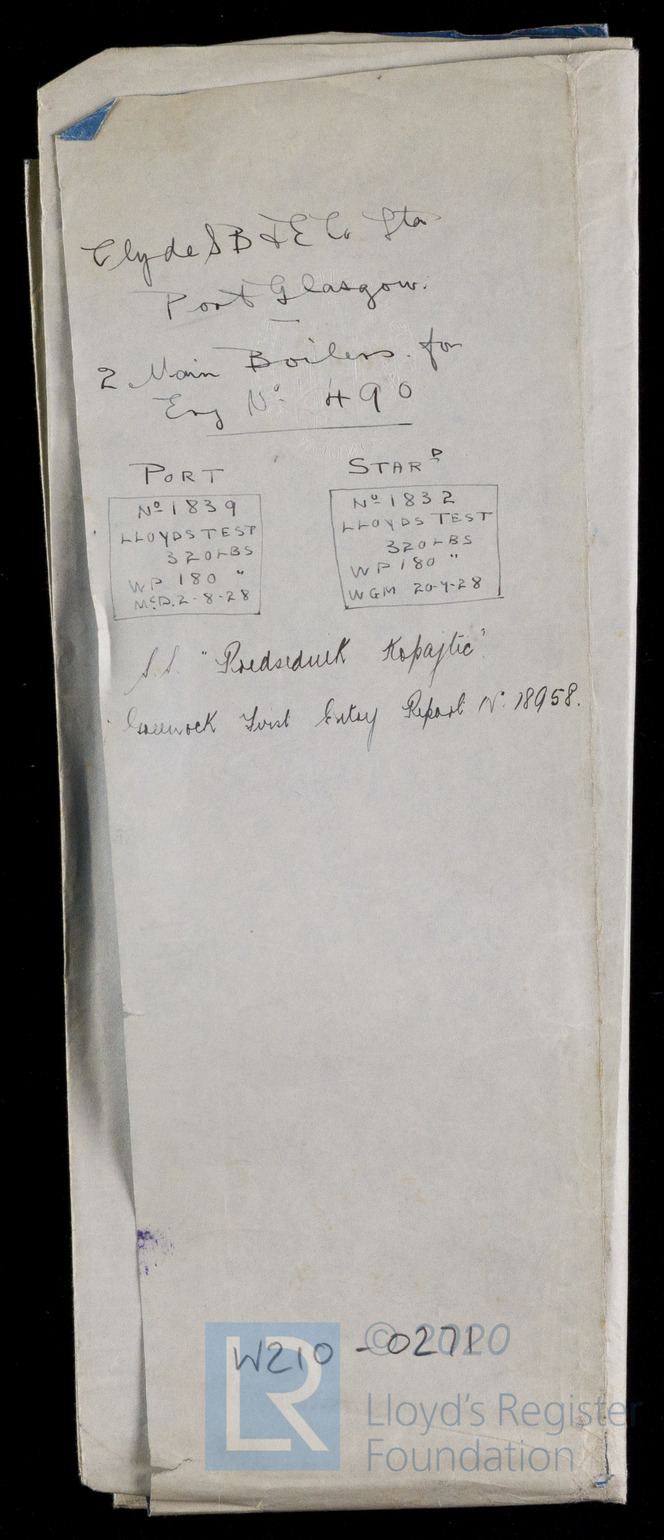 Clyde S B & E Co Ltd
Port Glasgow.
2 Main Boilers for
Eng No 490
PORT
No 1839
LLOYDS TEST
320 LBS
WP 180 "
McD. 2-8-28
STARD
No 1832
LLOYDS TEST
320 LBS
WP 180 "
WGM 20-4-28
S.S. "Predsednik Kopajtic"
Greenock First Entry Report No. 18958.
W210-0271
© 2020
LR
Lloyd's Register
Foundation